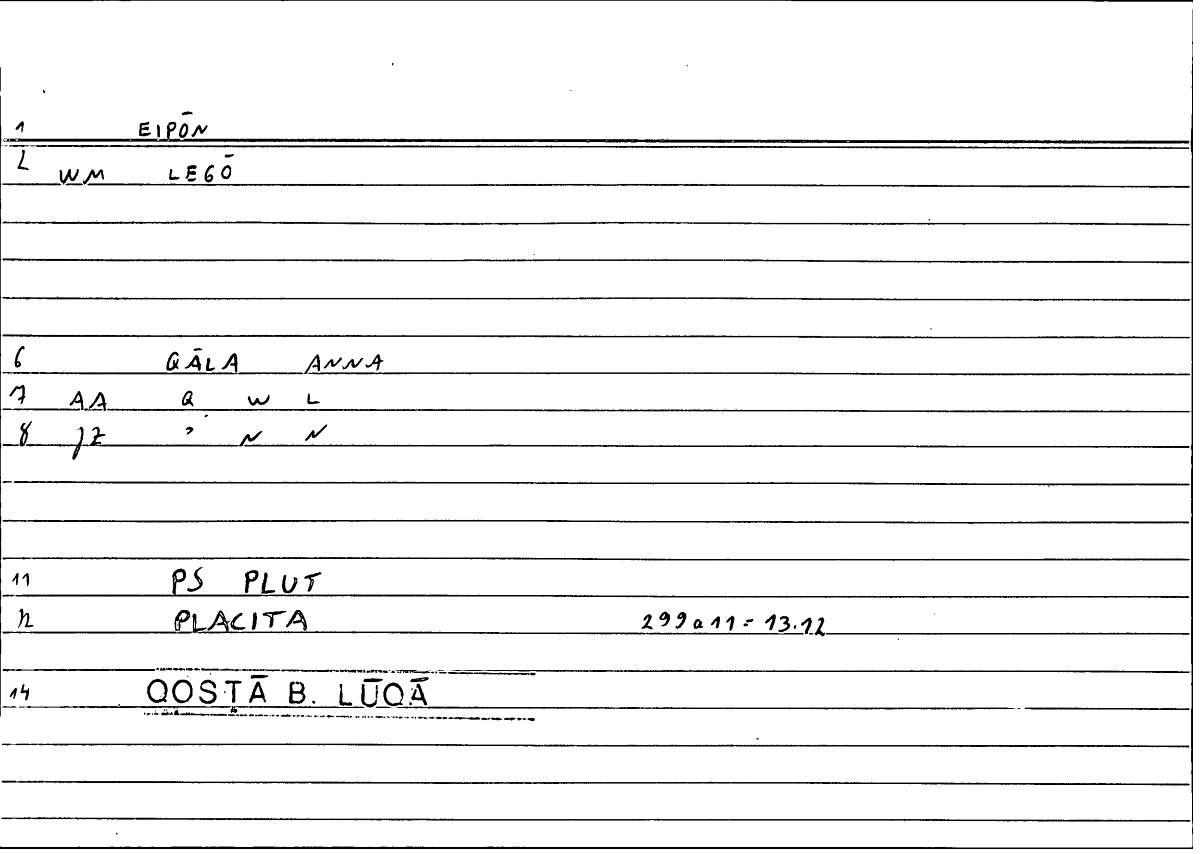 1 EIPŌN
2 WM LEGŌ
6 QĀLA ANNA
7 AA Q W L
8 JZ ' N N
11 PS PLUT
12 PLACITA 299a11 = 13.12
14 QOSṬĀ B. LŪQĀ